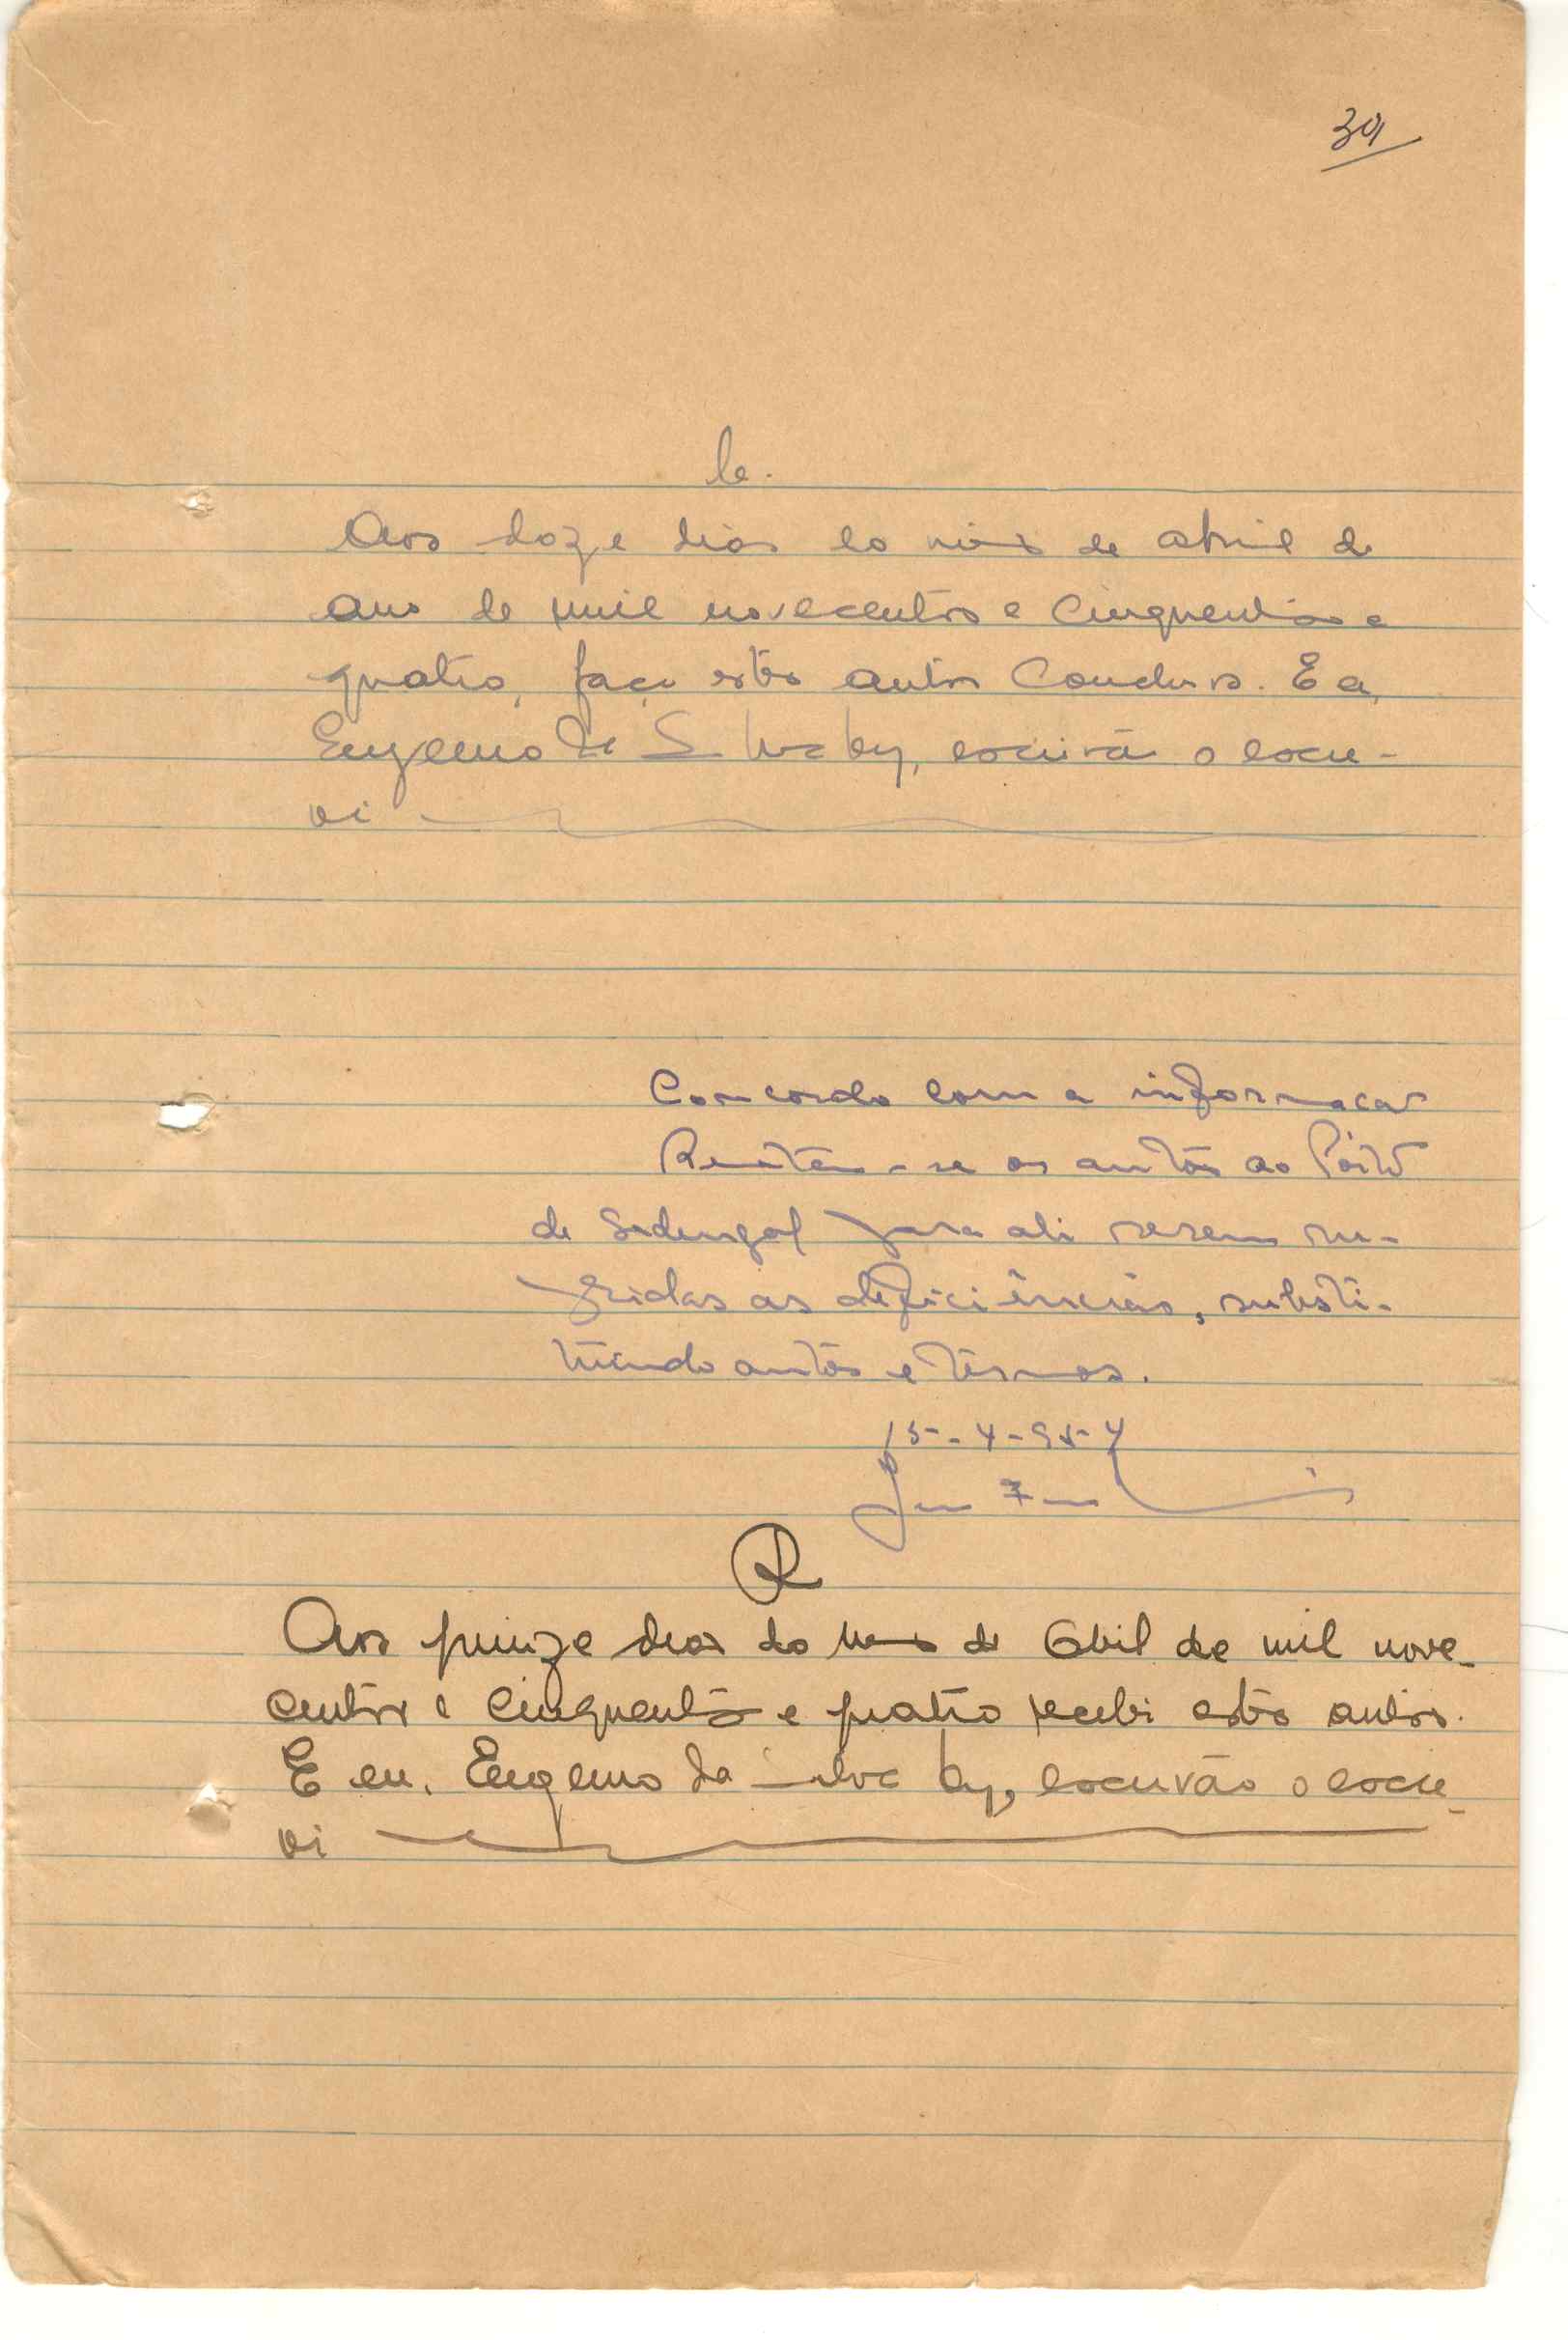 39
Aos doze dias do mês de abril de
ano de mil novecentos e cinquenta e
quatro, faço estes autos conclusos. E eu,
Eugenio da Silva, escrivão o escre-
vi
Concordo com a informação
os autos ao Pôsto
de para ali serem su-
pridas as deficiências, substi-
tuindo autos e têrmos.
15-4-954
R
Aos quinze dias do mês de Abril de mil nove-
centos e cinquenta e quatro recebi estes autos.
E eu, Eugenio da Silva, escrivão o escre-
vi